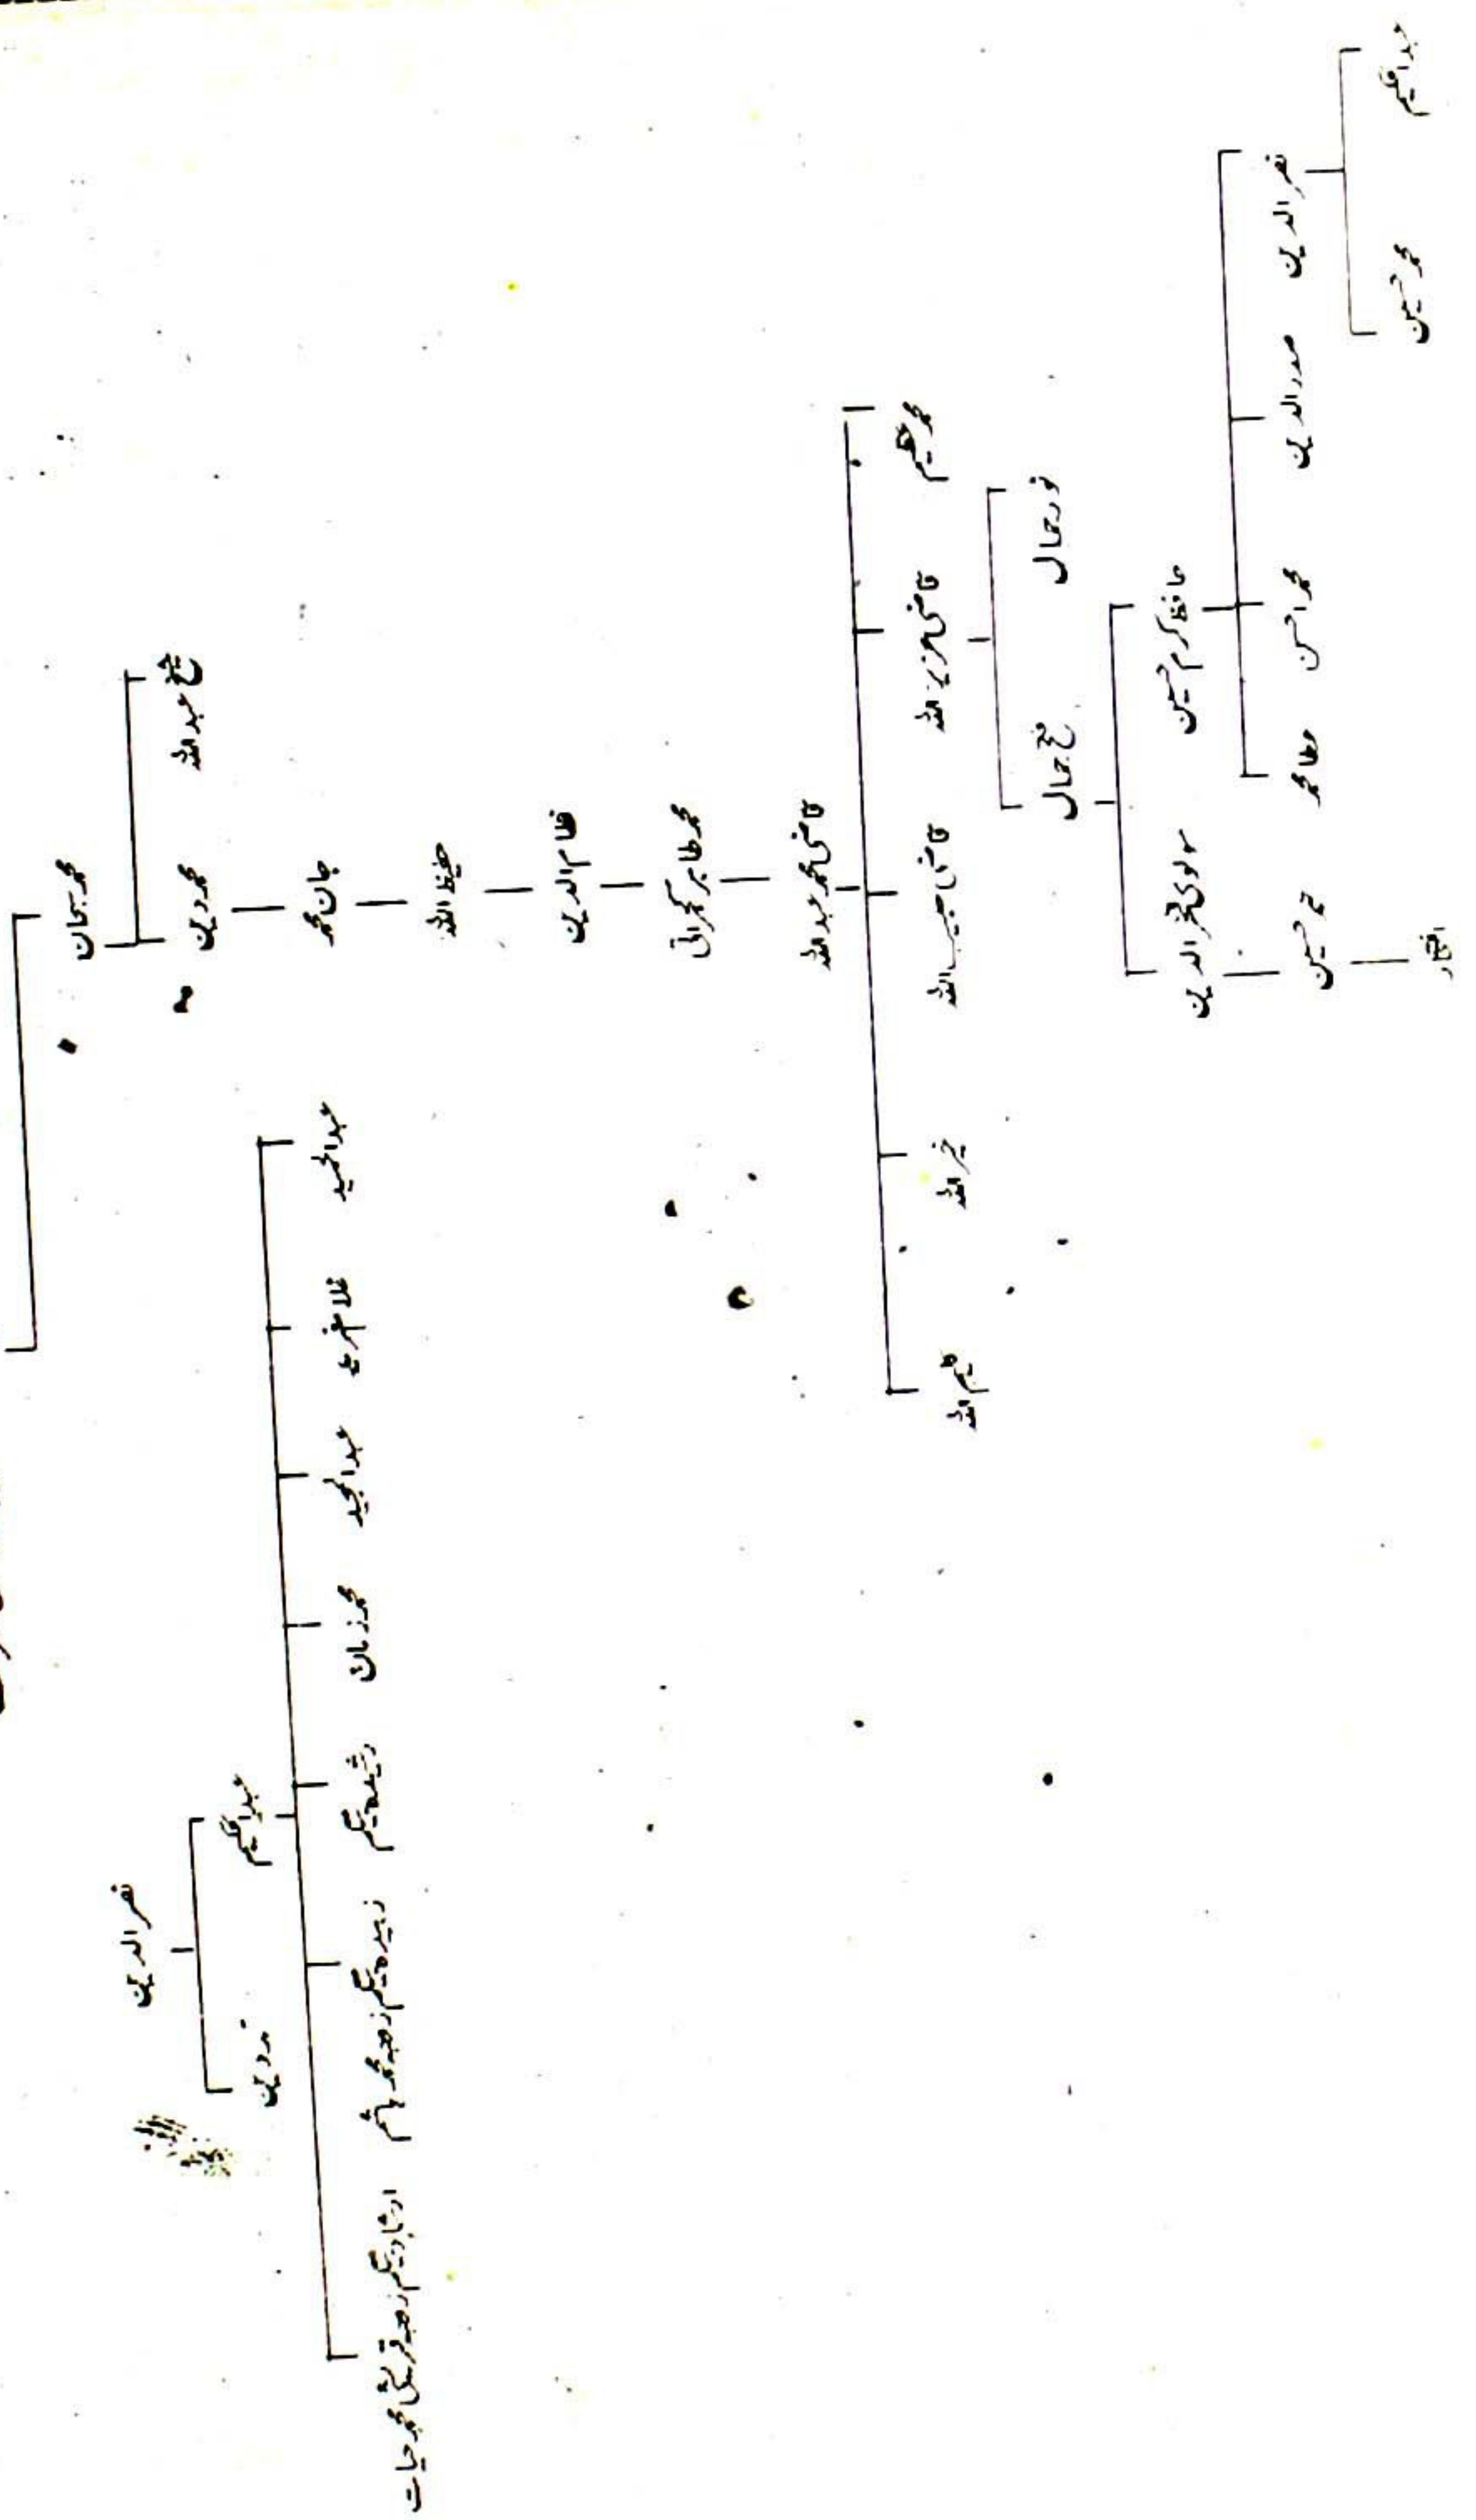 محمد سبحان
شیخ عبداللہ
محمد دین
جان محمد
حفیظ اللہ
نظام الدین
محمد طاہر گجراتی
قاضی محمد عبداللہ
محمد عظیم
قاضی عزیز اللہ
قاضی حبیب اللہ
خیر اللہ
عظیم اللہ
نور جمال
جمال
حافظ کرم حسین
مولوی فخر الدین
نصر الدین
صدر الدین
محمد احسن
عطا محمد
حسین
عبدالحکیم
محمد حسین
افتخار
نصر الدین
عبدالحکیم
عبدالحمید
غلام فرید
عبدالمجید
محمد زمان
رشیدہ بیگم
زبیدہ بیگم زوجہ محمد ہاشم
ارشاد بیگم زوجہ قریشی محمد حیات